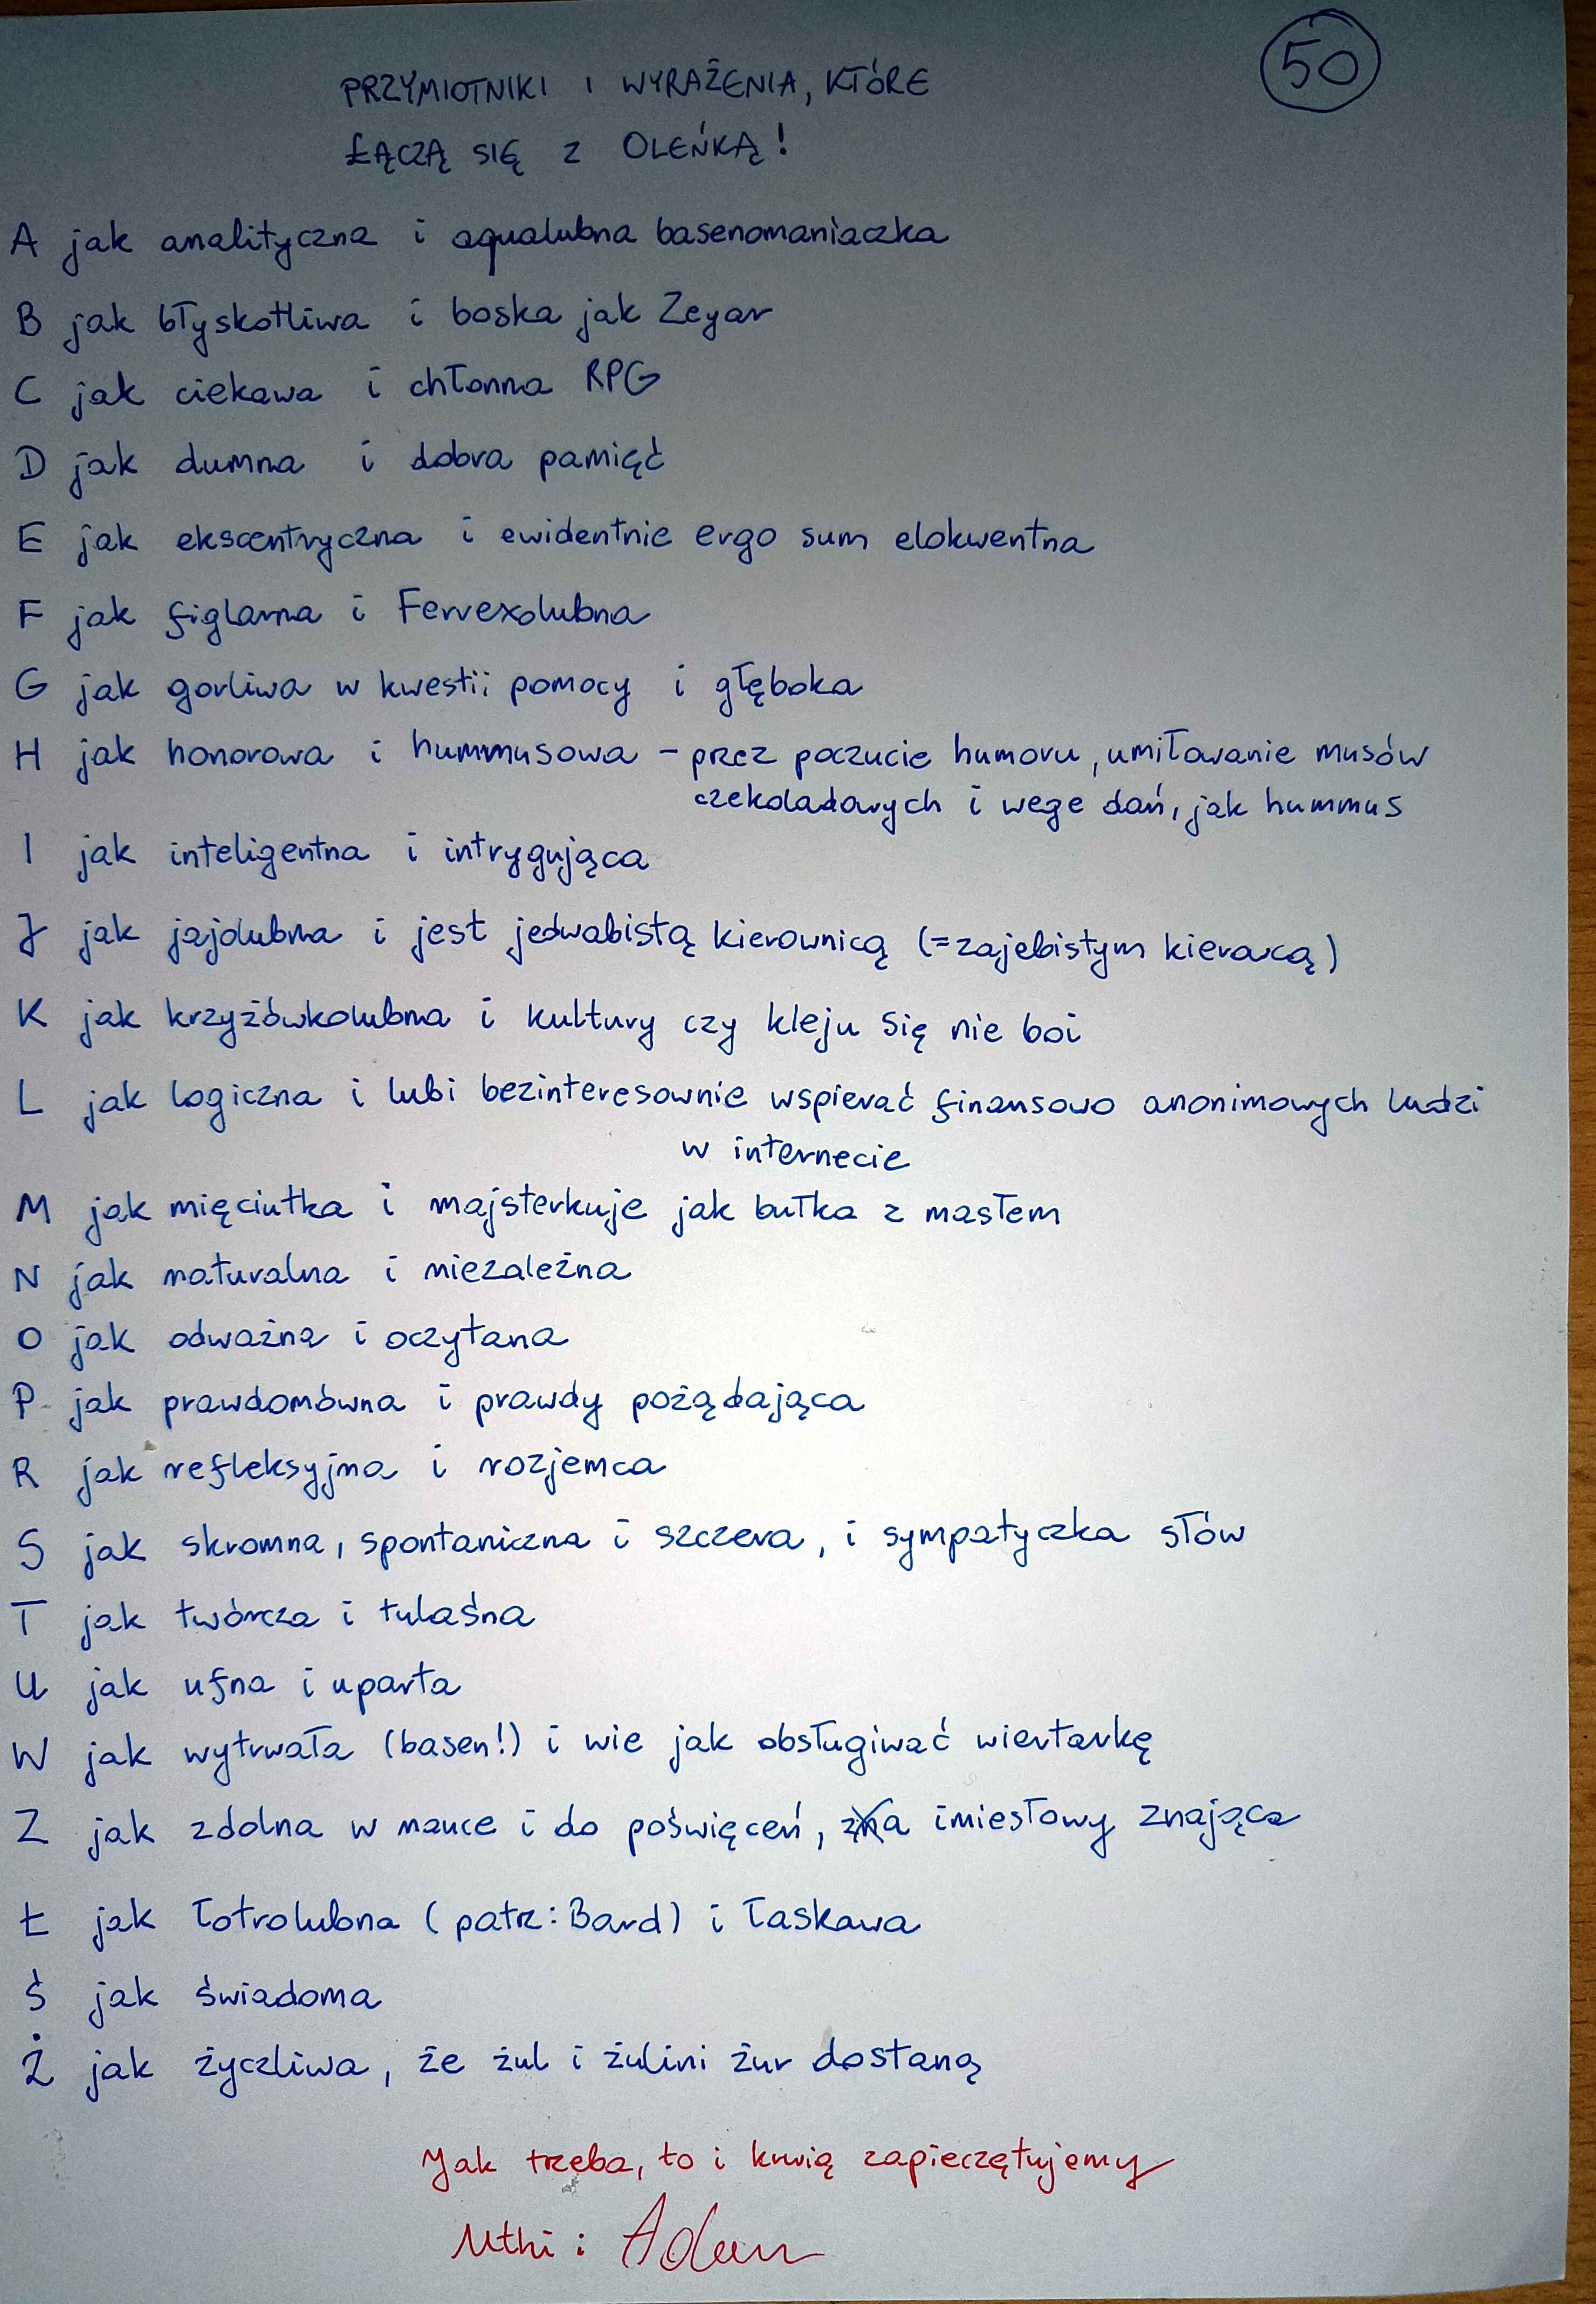 50
PRZYMIOTNIKI I WYRAŻENIA, KTÓRE
ŁĄCZĄ SIĘ Z OLEŃKĄ!
A jak analityczna i aqualubna basenomaniaczka
B jak błyskotliwa i boska jak Zeyar
C jak ciekawa i chłonna RPG
D jak dumna i dobra pamięć
E jak ekscentryczna i ewidentnie ergo sum elokwentna
F jak figlarna i Fervexolubna
G jak gorliwa w kwestii pomocy i głęboka
H jak honorowa i hummusowa - przez poczucie humoru, umiłowanie musów
czekoladowych i wege dań, jak hummus
I jak inteligentna i intrygująca
J jak jajolubna i jest jedwabistą kierownicą (=zajebistym kierowcą)
K jak krzyżówkolubna i kultury czy kleju się nie boi
L jak logiczna i lubi bezinteresownie wspierać finansowo anonimowych ludzi
w internecie
M jak mięciutka i majsterkuje jak bułka z masłem
N jak naturalna i niezależna
O jak odważna i oczytana
P jak prawdomówna i prawdy pożądająca
R jak refleksyjna i rozjemca
S jak skromna, spontaniczna i szczera, i sympatyczka słów
T jak twórcza i tulaśna
U jak ufna i uparta
W jak wytrwała (basen!) i wie jak obsługiwać wiertarkę
Z jak zdolna w nauce i do poświęceń, imiesłowy znająca
Ł jak łotrolubna (patrz: Bard) i łaskawa
Ś jak świadoma
Ż jak życzliwa, że żul i żulini żur dostaną
Jak trzeba, to i krwią zapieczętujemy
Uthi i Adam